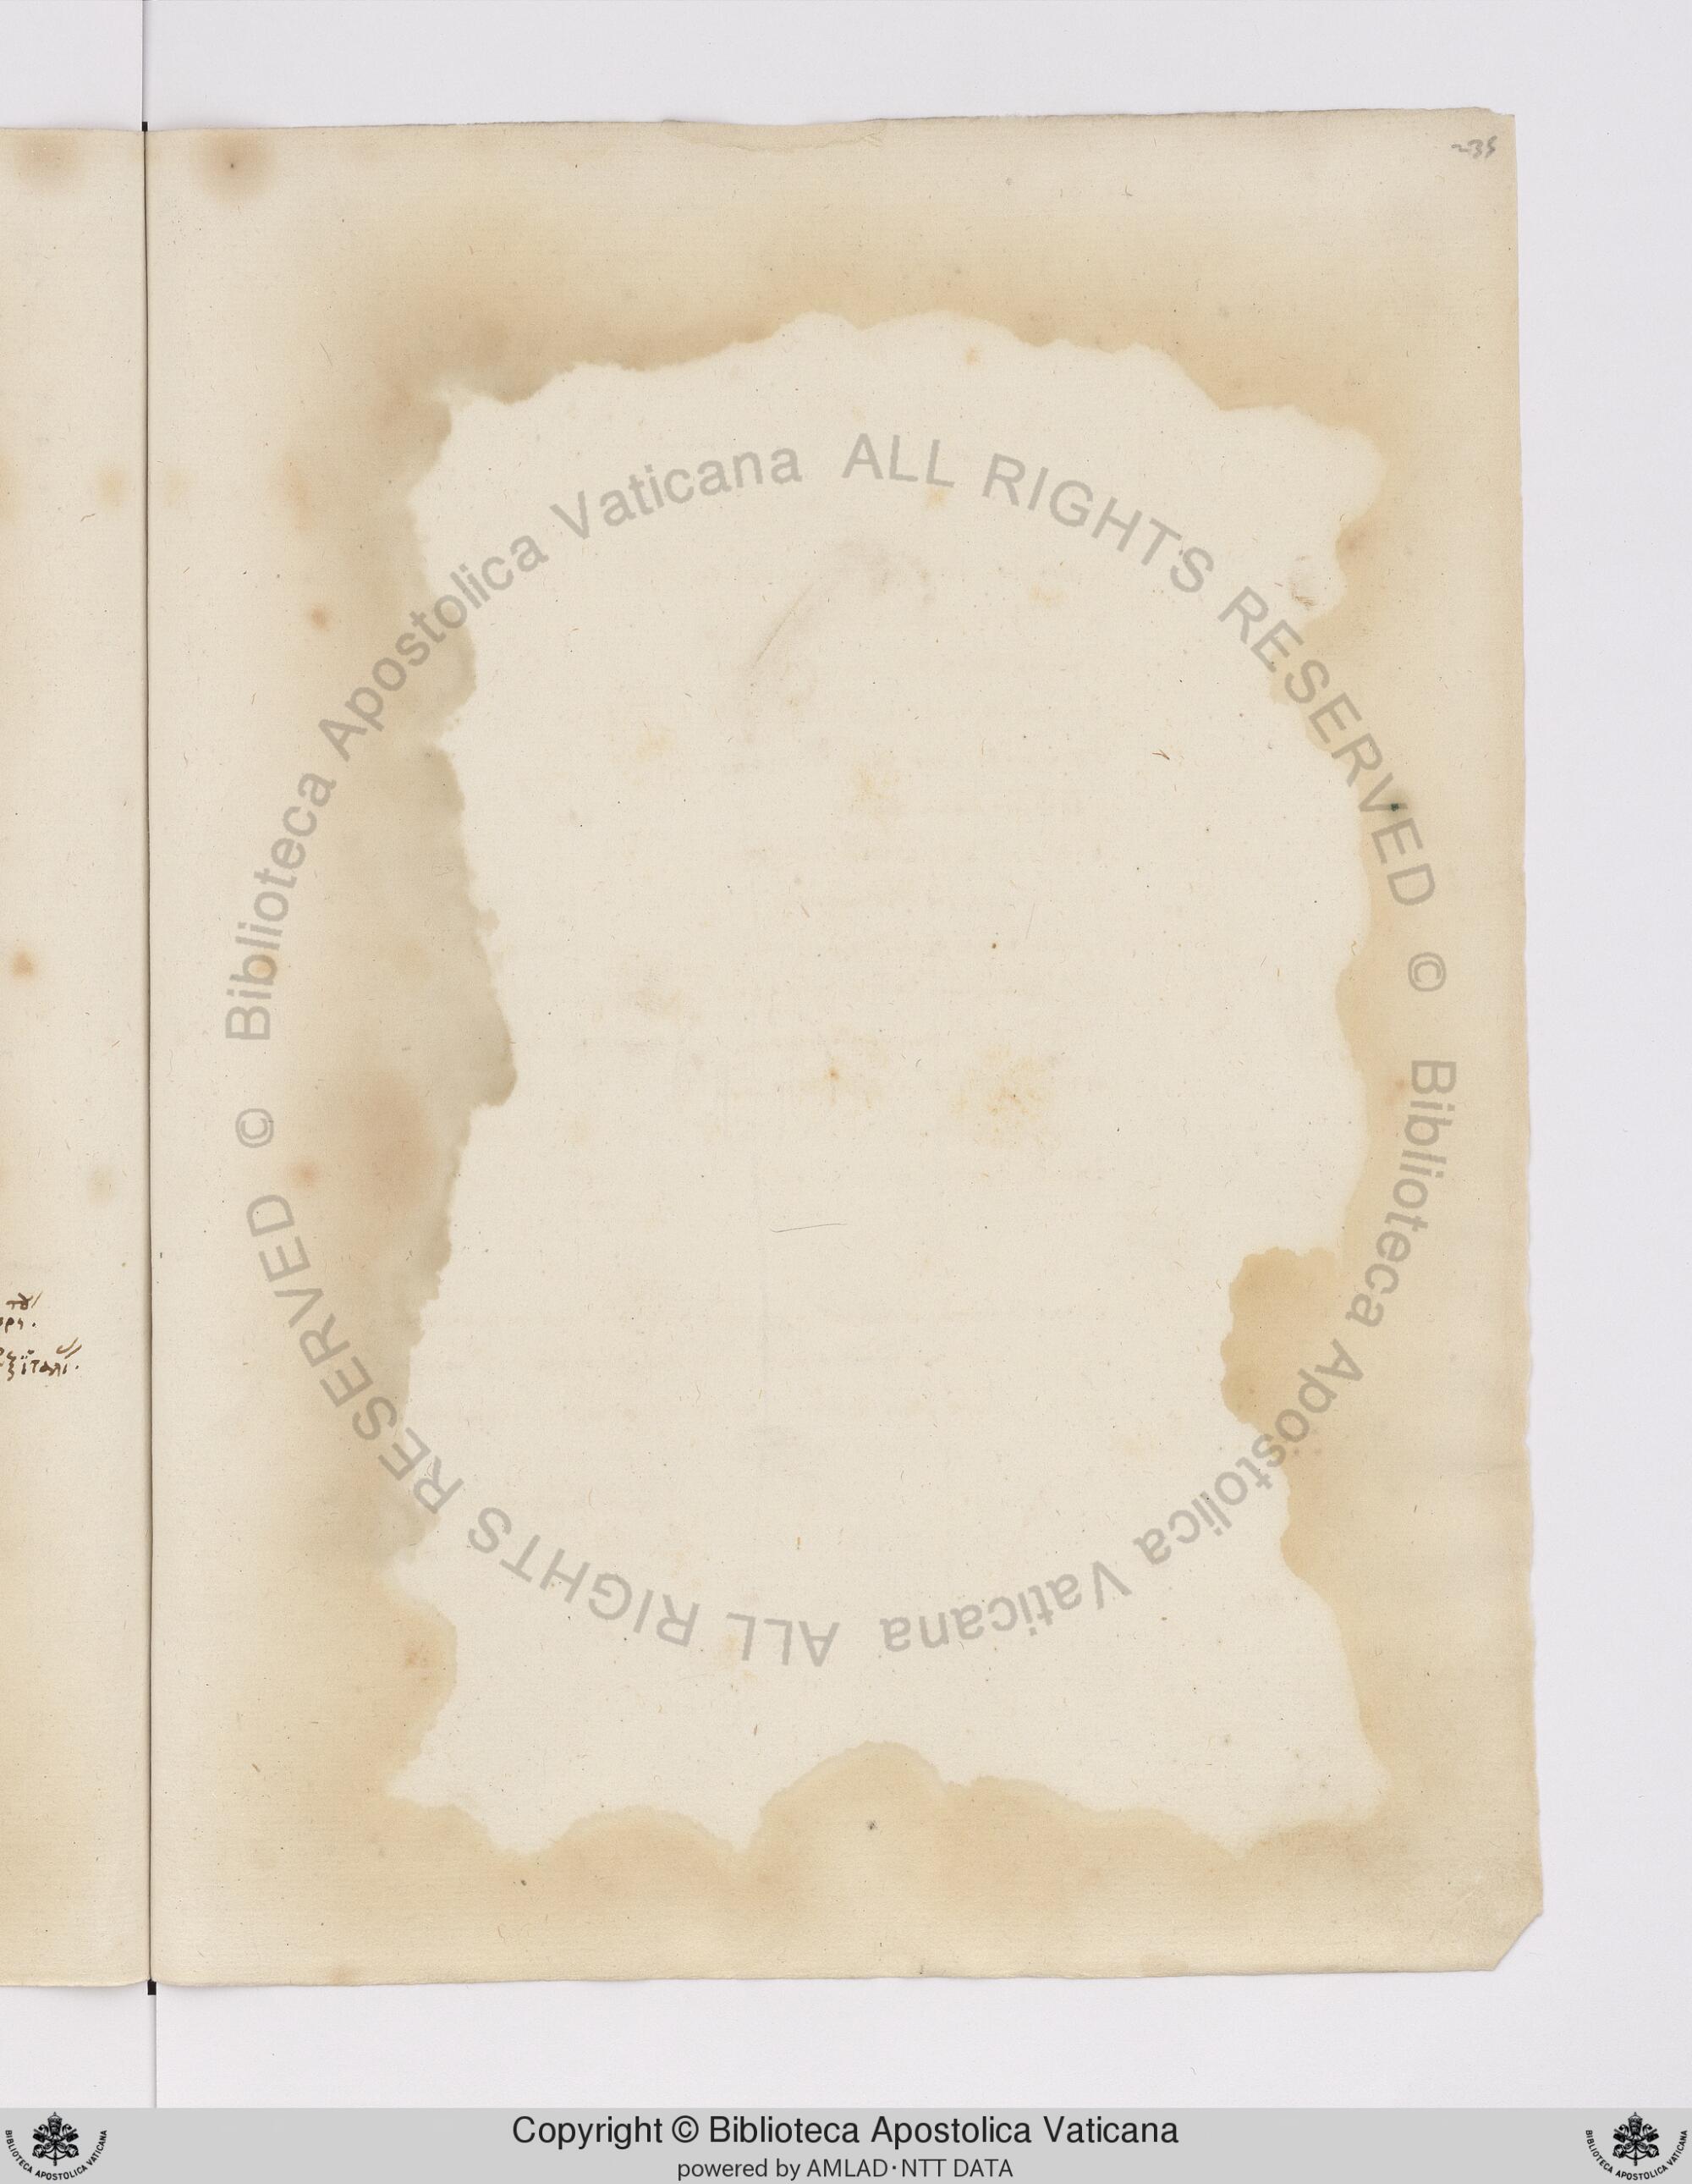 235
© Biblioteca Apostolica Vaticana ALL RIGHTS RESERVED
© Biblioteca Apostolica Vaticana ALL RIGHTS RESERVED
Copyright © Biblioteca Apostolica Vaticana
powered by AMLAD·NTT DATA
BIBLIOTECA APOSTOLICA VATICANA
BIBLIOTECA APOSTOLICA VATICANA